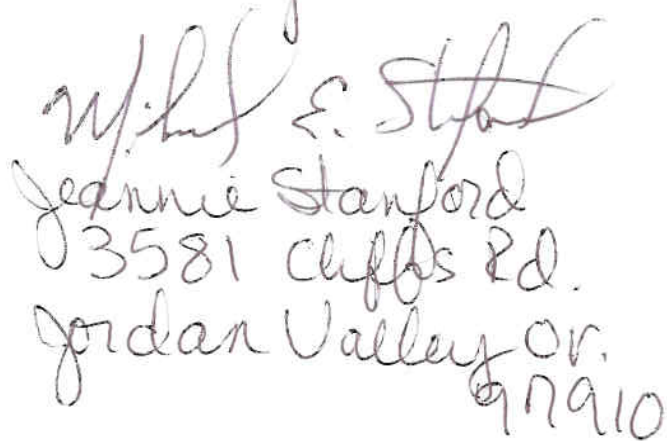 Michael E. Stanford
Jeannie Stanford
3581 Cliffs Rd.
Jordan Valley Or.
97910